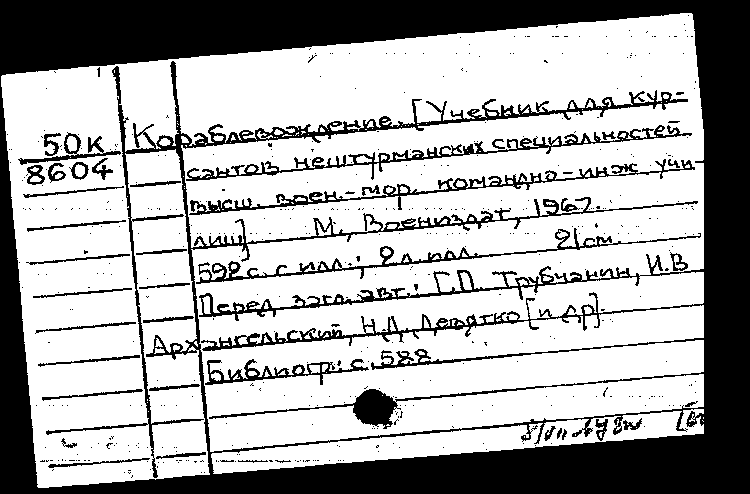 50к
8604
Кораблевождение. [Учебник для кур-
сантов нештурманских специальностей
высш. воен.-мор. командно-инж учи-
лищ]. М., Воениздат, 1967.
592 с. с илл.; 2 л. илл. 21 см.
Перед загл. авт.: Г.П. Трубчанин, И.В
Архангельский, Н.Д. Девятко [и др].
Библиогр: с. 588.